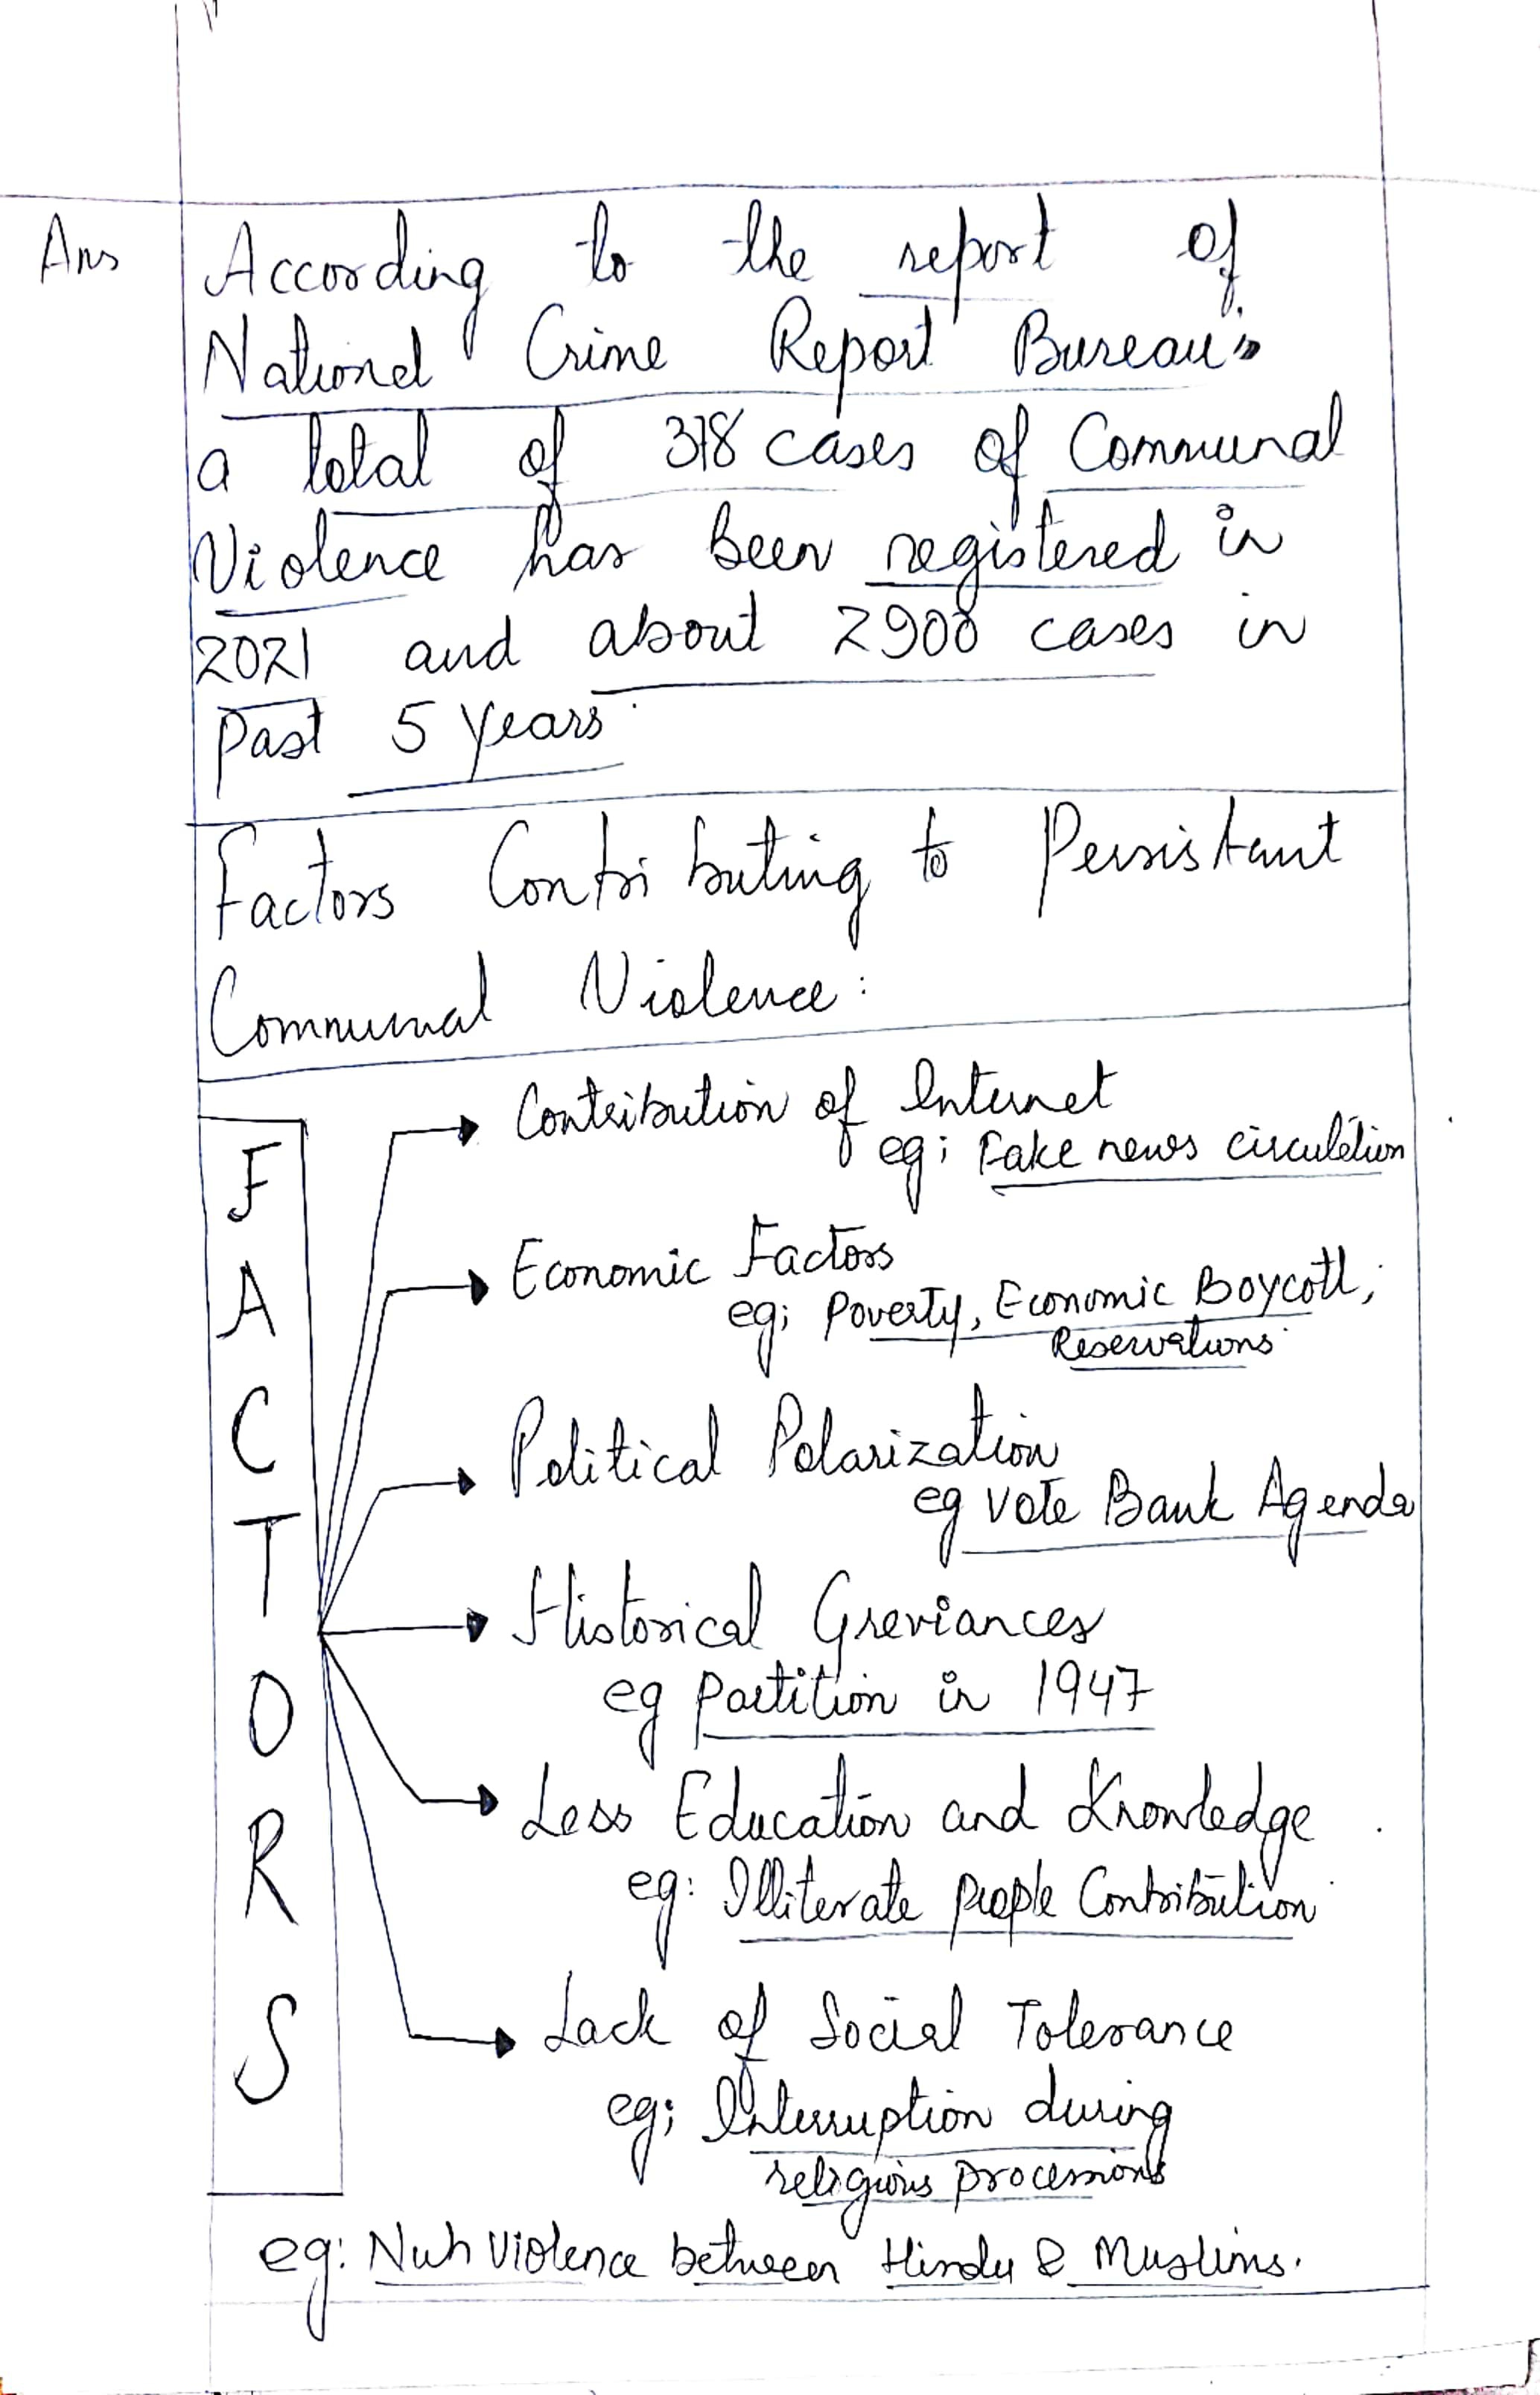 Ans
According to the report of
National Crime Report Bureau's
a total of 378 cases of Communal
Violence has been registered in
2021 and about 2900 cases in
past 5 years.
Factors Contributing to Persistant
Communal Violence:
FACTORS
Contribution of Internet
eg; Fake news circulation
Economic Factors
eg; Poverty, Economic Boycott,
Reservations
Political Polarization
eg Vote Bank Agenda
Historical Greviances
eg partition in 1947
Less Education and Knowledge
eg: Illiterate people Contribution
Lack of Social Tolerance
eg; Interruption during
religious processions
eg: Nuh Violence between Hindu & Muslims.